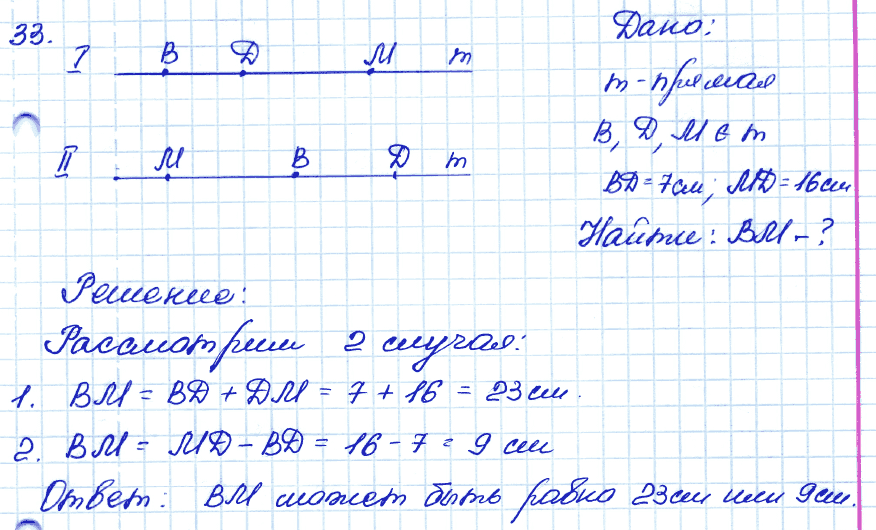 33.
I B D M m
II M B D m
Дано:
m - прямая
B, D, M ∈ m
BD = 7см; MD = 16см
Найти: BM - ?
Решение:
Рассмотрим 2 случая:
1. BM = BD + DM = 7 + 16 = 23см.
2. BM = MD - BD = 16 - 7 = 9 см
Ответ: BM может быть равно 23см или 9см.